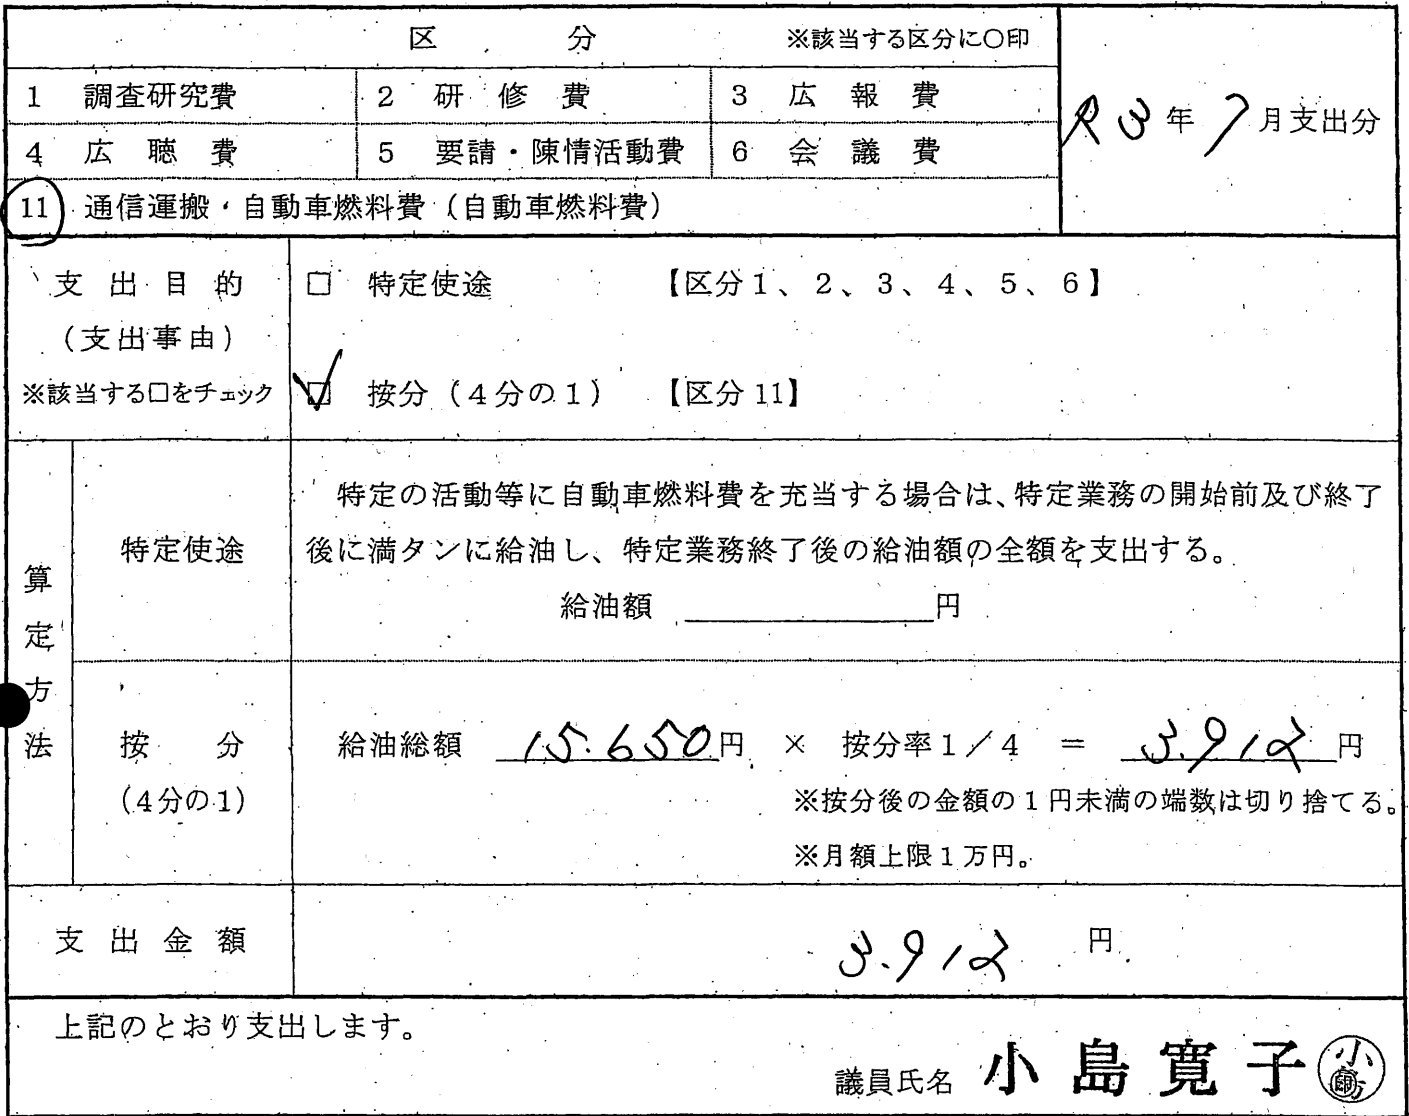 区 分 ※該当する区分に○印
1 調査研究費 2 研修費 3 広報費
R3年7月支出分
4 広聴費 5 要請・陳情活動費 6 会議費
11 通信運搬・自動車燃料費(自動車燃料費)
支出目的
(支出事由)
※該当する□をチェック
□ 特定使途 【区分1、2、3、4、5、6】
☑ 按分(4分の1) 【区分11】
算定方法
特定使途
特定の活動等に自動車燃料費を充当する場合は、特定業務の開始前及び終了
後に満タンに給油し、特定業務終了後の給油額の全額を支出する。
給油額 円
按分
(4分の1)
給油総額 15.650円 × 按分率1/4 = 3.912円
※按分後の金額の1円未満の端数は切り捨てる。
※月額上限1万円。
支出金額 3.912 円
上記のとおり支出します。
議員氏名 小島寛子